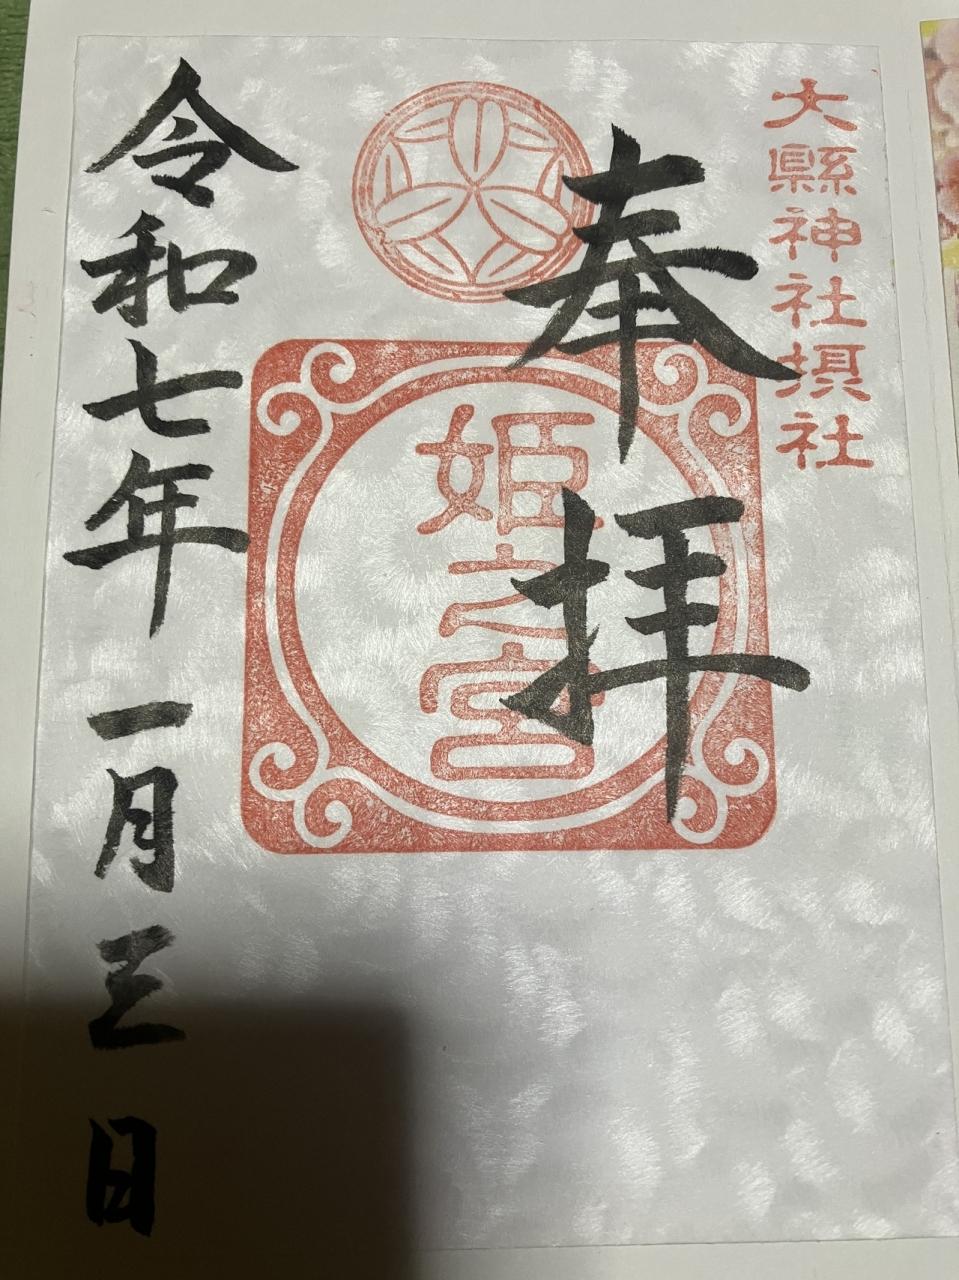 大縣神社摂社
奉拝
姫之宮
令和七年一月三日